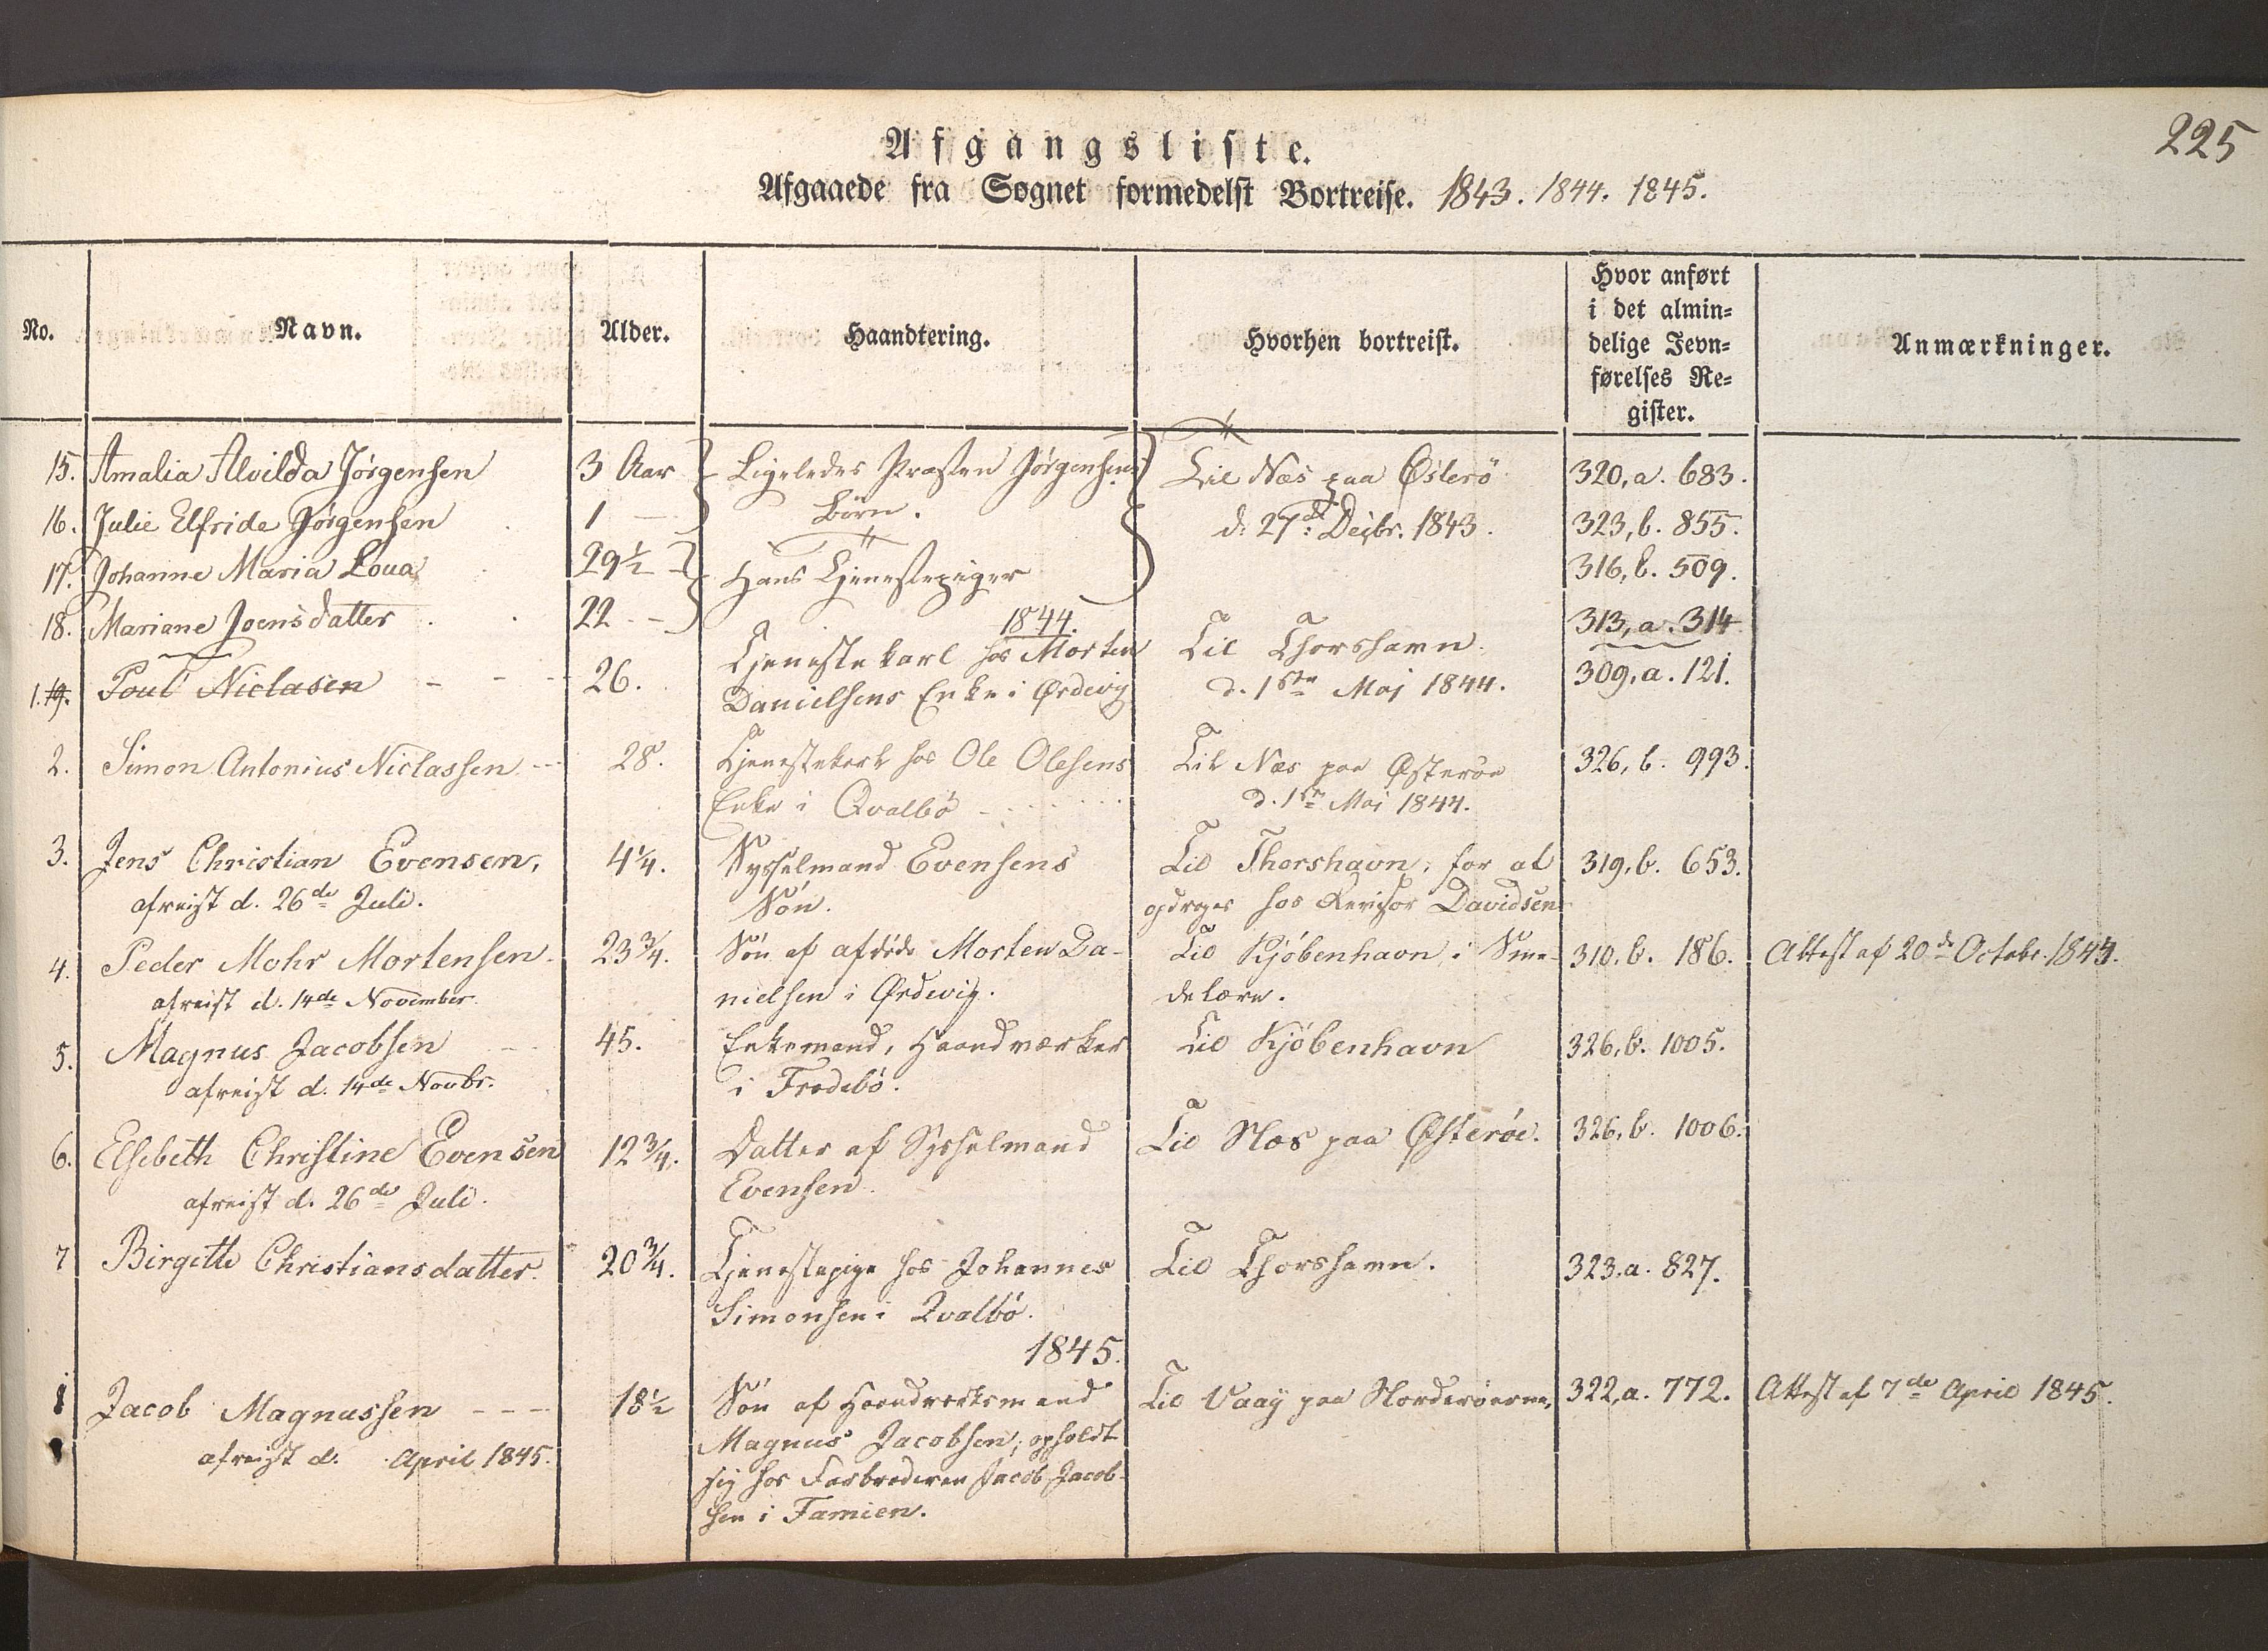 225
Afgangsliste.
Afgaaede fra Sognet formedelst Bortreise. 1843. 1844. 1845.
No. Navn. Alder. Haandtering. Hvorhen bortreist. Hvor anført i det almin= delige Jevn= førelses Re= gister. Anmærkninger.
15. Amalia Alvilda Jørgensen 3 Aar Ligeledes Præsten Jørgensens Til Næs paa Østerö 320, a. 683.
16. Julie Elfride Jørgensen 1 — Börn. d. 27de Decbr. 1843. 323, b. 855.
17. Johanne Maria Loua 29½ — Hans Tjenestepiger 316, b. 509.
18. Mariane Joensdatter 22 — 313, a. 314
1844.
1. 19. Poul Niclasen - - - 26. Tjenestekarl hos Morten Til Thorshavn. 309, a. 121.
Danielsens Enke i Ørdevig d. 1ste Maj 1844.
2. Simon Antonius Niclassen -- 28. Tjenestekarl hos Ole Olesens Til Næs paa Østeröe 326, b. 993.
Enke i Qvalbö d. 1ste Maj 1844.
3. Jens Christian Evensen, 4¼. Sysselmand Evensens Til Thorshavn, for at 319, b. 653.
afreist d. 26de Juli. Sön. opdrages hos Revisor Davidsen
4. Peder Mohr Mortensen. 23¾. Sön af afdöde Morten Da- Til Kjöbenhavn i Sme- 310, b. 186. Attest af 20de Octobr. 1844.
afreist d. 14de November. nielsen i Ørdevig. delære.
5. Magnus Jacobsen 45. Enkemand, Haandværker Til Kjöbenhavn 326, b. 1005.
afreist d. 14de Novbr. i Frodebö.
6. Elsebeth Christine Evensen 12¾. Datter af Sysselmand Til Næs paa Østeröe. 326, b. 1006.
afreist d. 26de Juli. Evensen.
7 Birgitte Christiansdatter. 20¾. Tjenestepige hos Johannes Til Thorshavn. 323. a. 827.
Simonsen i Qvalbö.
1845.
1 Jacob Magnussen --- 18½ Sön af Haandverksmand Til Vaag paa Norderöerne, 322, a. 772. Attest af 7de April 1845.
afreist d. April 1845. Magnus Jacobsen; opholdt
sig hos Farbroderen Jacob Jacob-
sen i Famien.